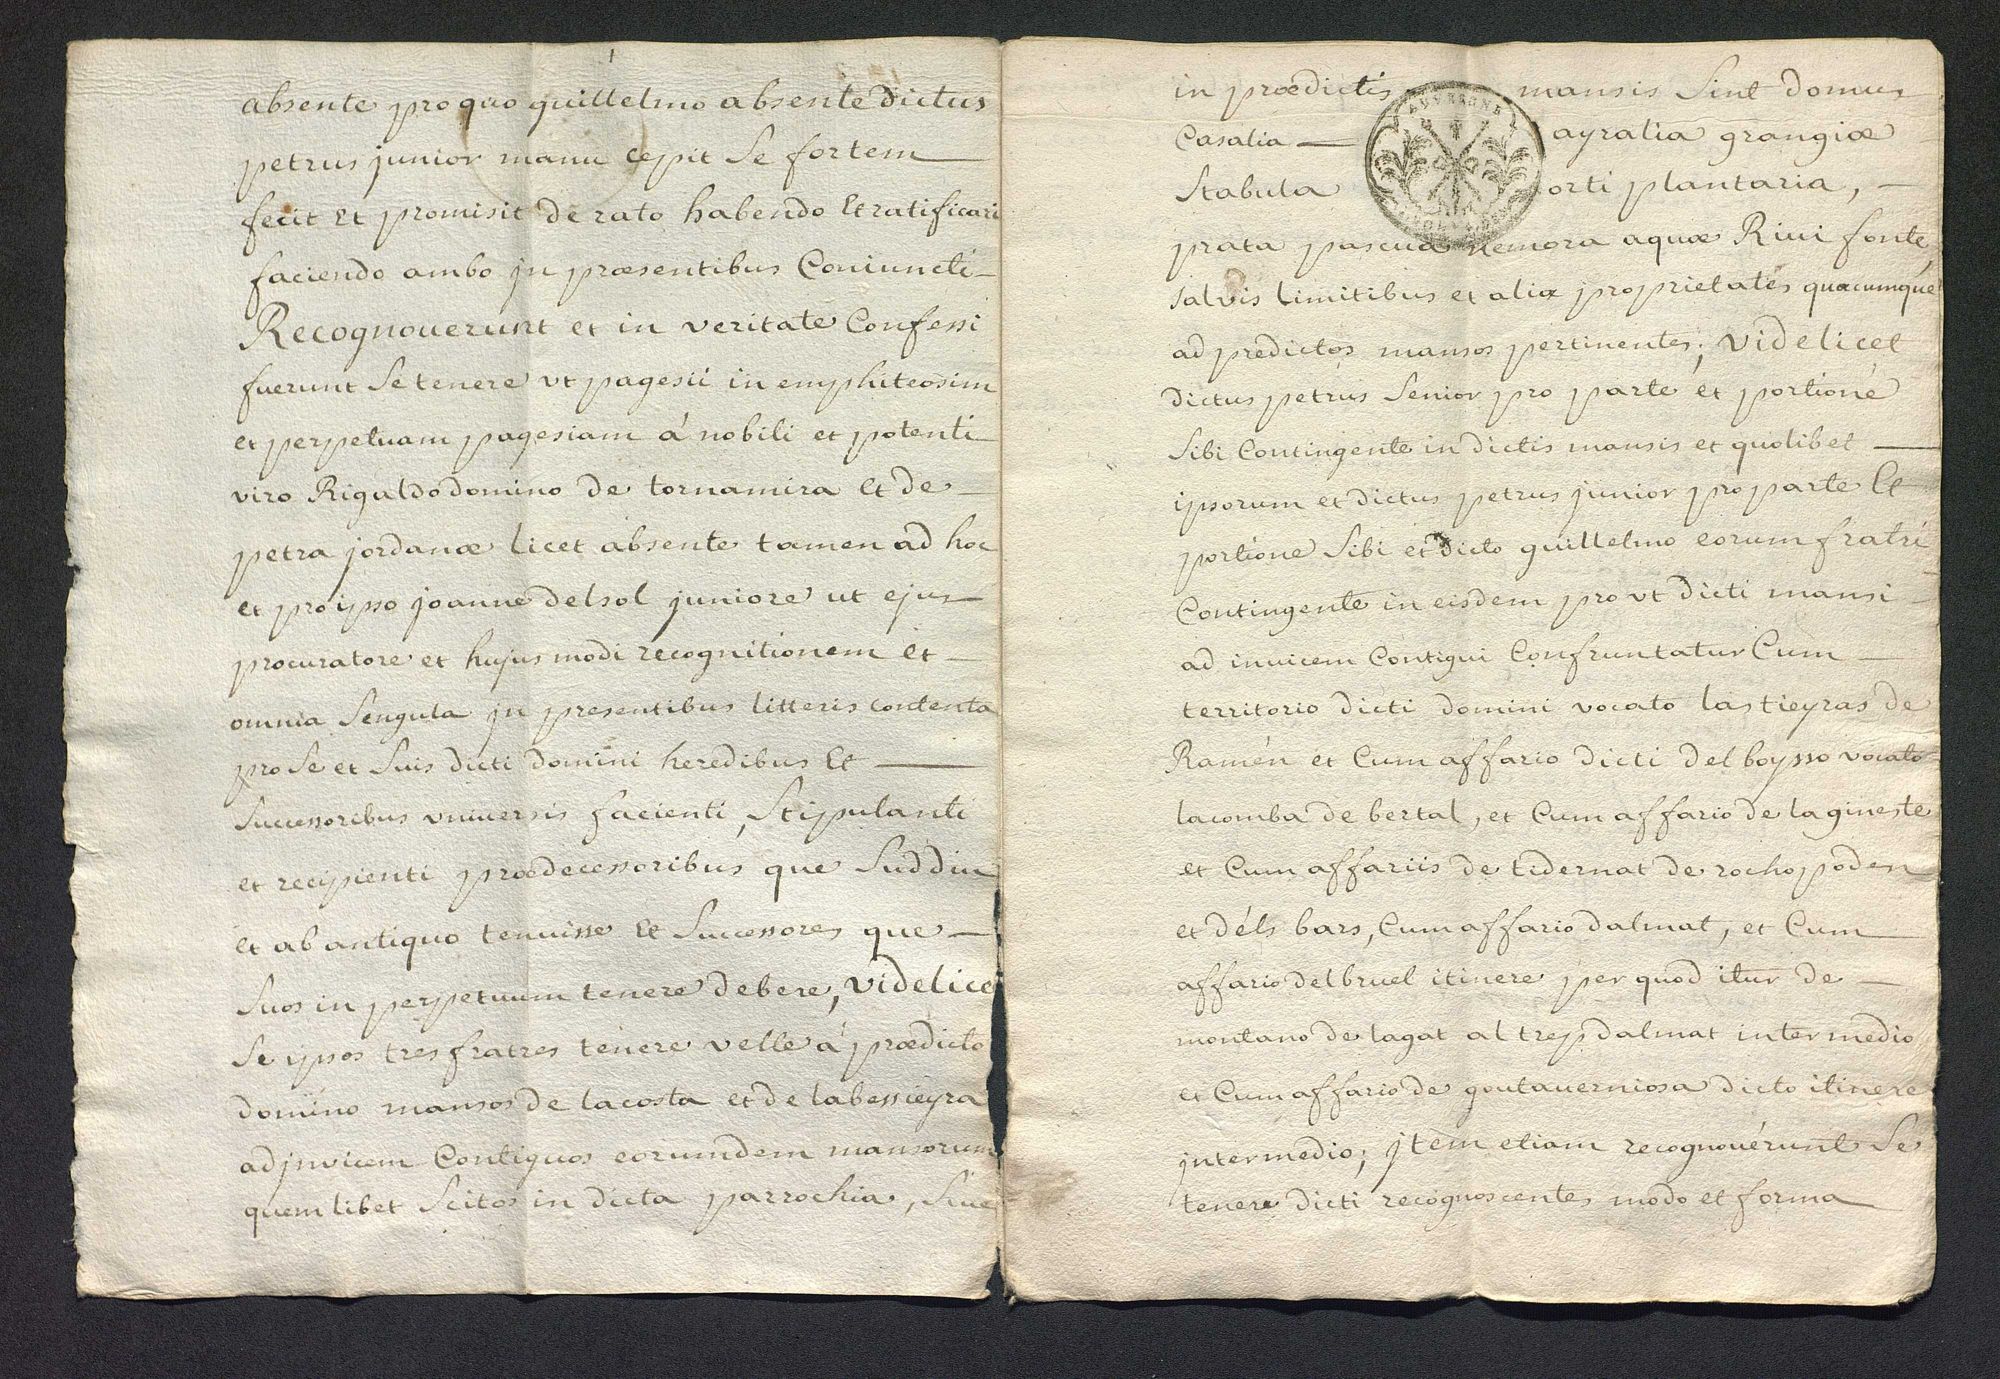 absente pro quo guillelmo absente dictus
petrus junior manu cepit se fortem
fecit et promisit de rato habendo et ratificari
faciendo ambo jn præsentibus Coniuncti
Recognouerunt et in veritate Confessi
fuerunt se tenere vt pagesii in emphiteosim
et perpetuam pagesiam á nobili et potenti
viro Rigaldo domino de tornamira et de
petra jordanæ licet absente tamen ad hoc
et pro ipso joanne delsol juniore ut ejus
procuratore et hujus modi recognitionem et
omnia sengula jn presentibus litteris contenta
pro se et suis dicti domini heredibus et
successoribus vniuersis facienti, stipulanti
et recipienti prædecessoribus que suddiu
et ab antiquo tenuisse et successores que
suos in perpetuum tenere debere, videlice
se ipsos tres fratres tenere velle á prædicto
domino mansos de lacosta et de labessieyra
ad jnvicem Contiguos eorumdem mansorum
quem libet scitos in dicta parrochia, siue
AUVERGNE
in prædictis mansis sint domus
Casalia ayralia grangiæ
stabula orti plantaria,
prata pascua nemora aquæ Riui fonte,
salvis limitibus et aliæ proprietates quacumque
ad predictos mansos pertinentes; videlicet
dictus petrus senior pro parte et portione
sibi Contingente in dictis mansis et quolibet
ipsorum et dictus petrus junior pro parte et
portione sibi et dicto guillelmo eorum fratri
Contingente in eisdem pro vt dicti mansi
ad invicem Contigui Confruntatur Cum
territorio dicti domini vocato las tieyras de
Ramén et Cum affario dicti del boysso vocato
lacomba de bertal, et Cum affario de lagineste
et Cum affariis de tidernat de rochopoden
et déls bars, Cum affario dalmat, et Cum
affario del bruel itinere per quod itur de
montano de lagat al trep dalmat intermedio
et Cum affario de goutauerniosa dicto itinere
jntermedio; jtem etiam recognouérunt se
tenere dicti recognoscentes modo et forma